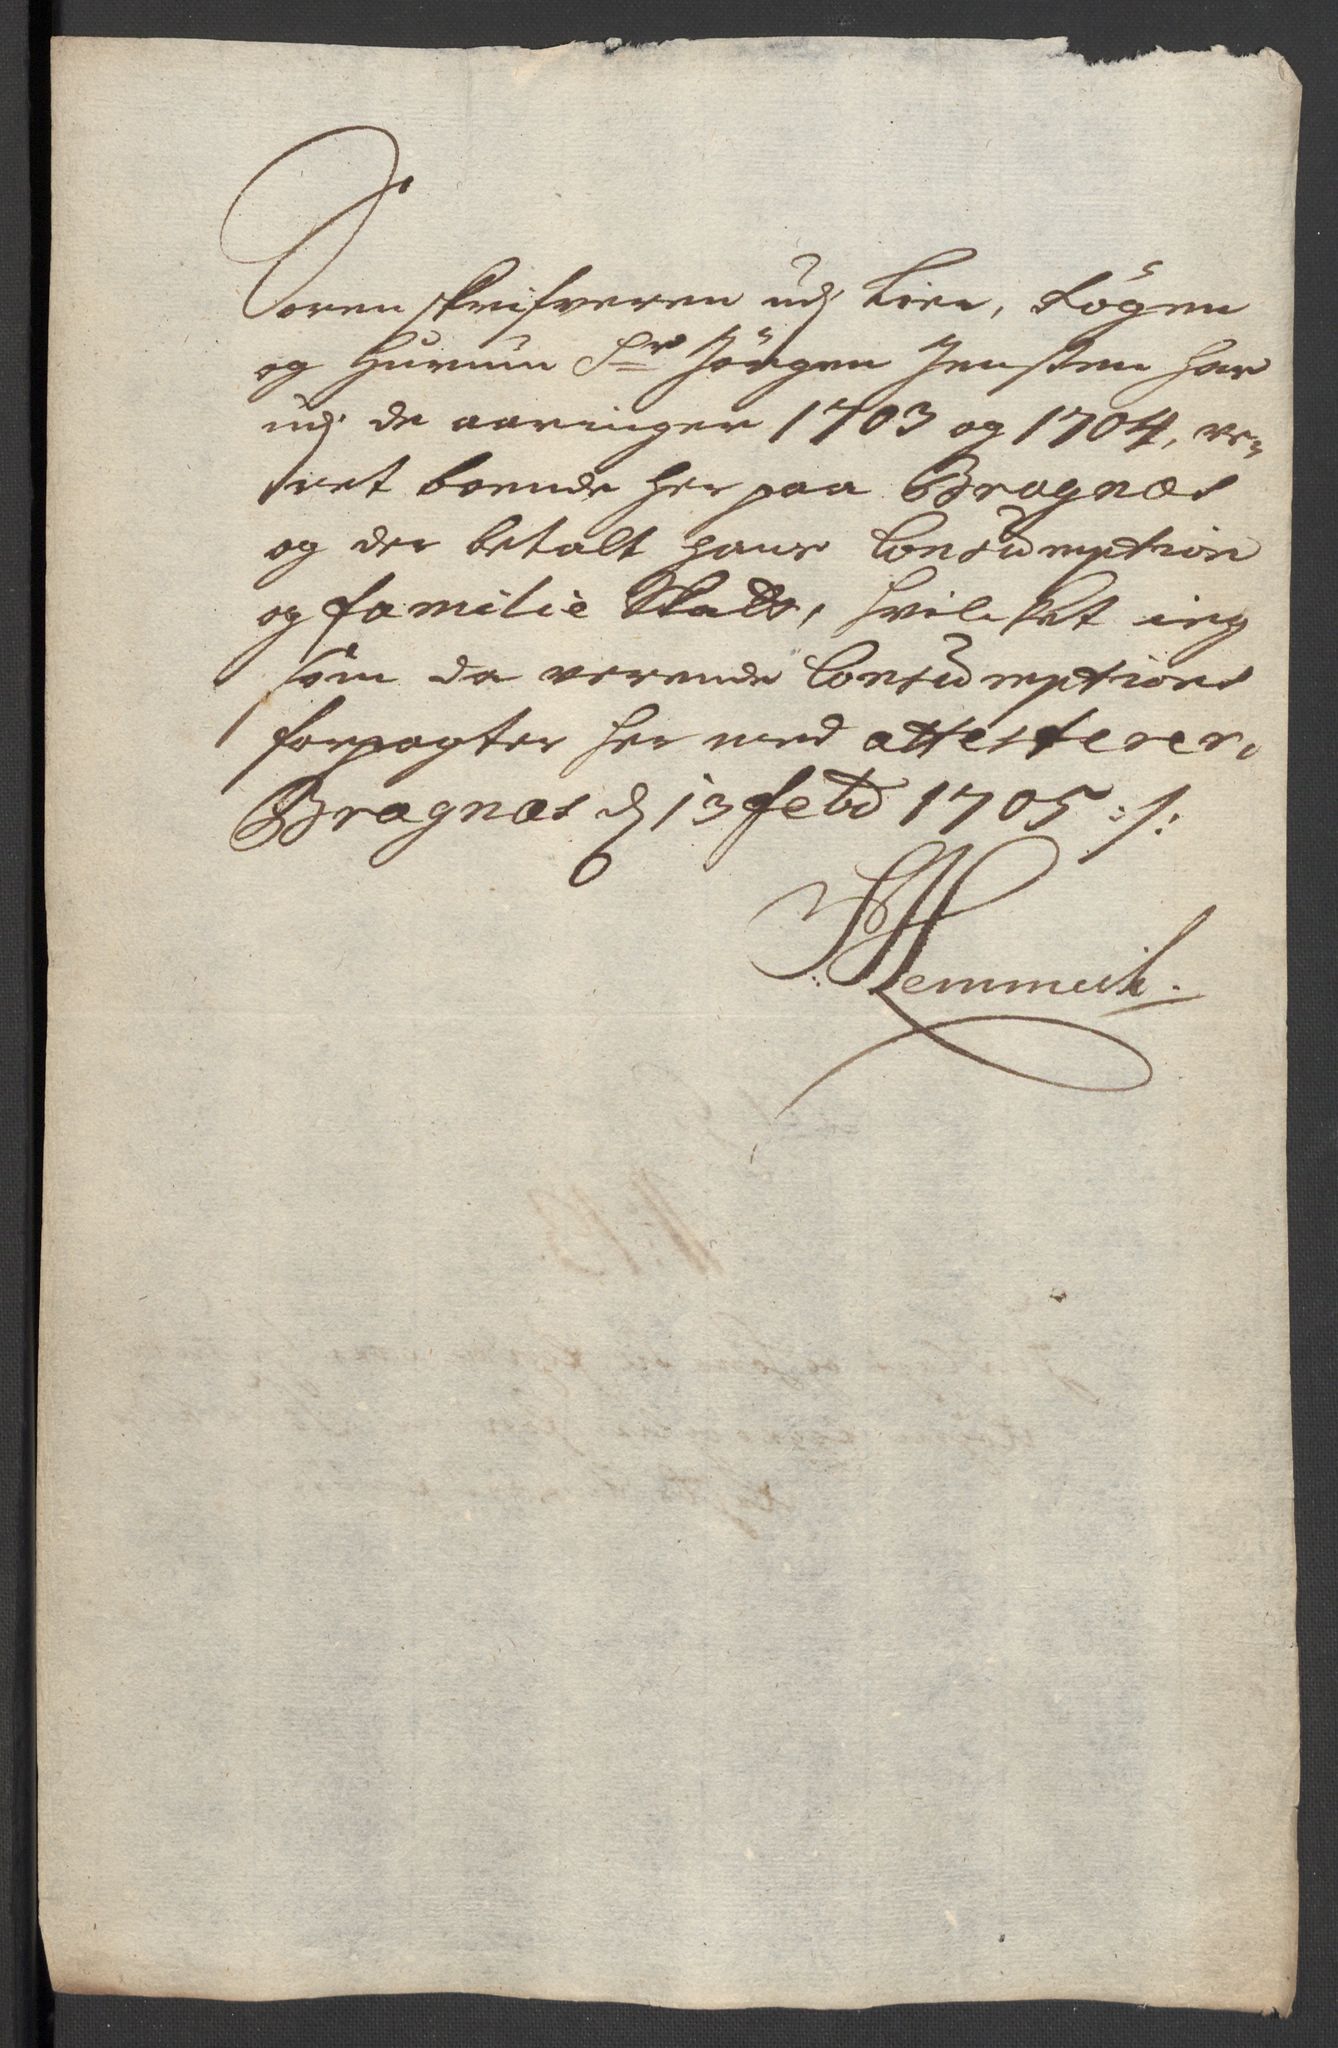 Sorenskrifveren udj Lier, Røgen
og Hurum Sr Jörgen Jensen har
udj de aaringer 1703 og 1704, ve=
ret boende her paa Bragnæs
og der betalt hans Consumption
og familie Skatt, hvilket ieg
som da verende Consumptions
forpagter her med attesterer,
Bragnæs d 13 febr 1705 ·/:
Hemmich.
N: 13